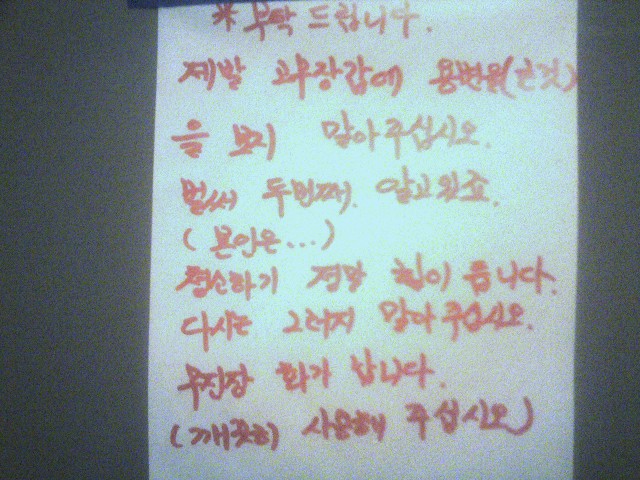 * 부탁 드립니다.
제발 고무장갑에 용변을(큰것)
을 보지 말아 주십시오.
벌써 두번째. 알고있죠.
( 본인은...)
청소하기 정말 힘이 듭니다.
다시는 그러지 말아 주십시오.
무진장 화가 납니다.
(깨끗히 사용해 주십시오)